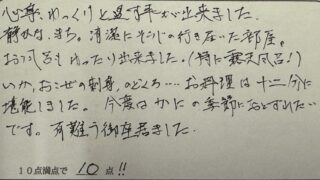 心身、ゆっくりと過す事が出来ました。
静かな、まち。清潔にそうじの行き届いた部屋。
お风呂もゆったり出来ました。(特に露天风呂!)
いか、おこぜの刺身、のどくろ…お料理は十二分に
堪能しました。今度はかにの季節におとずれたい
です。有難う御座居ました。
10点満点で 10 点!!